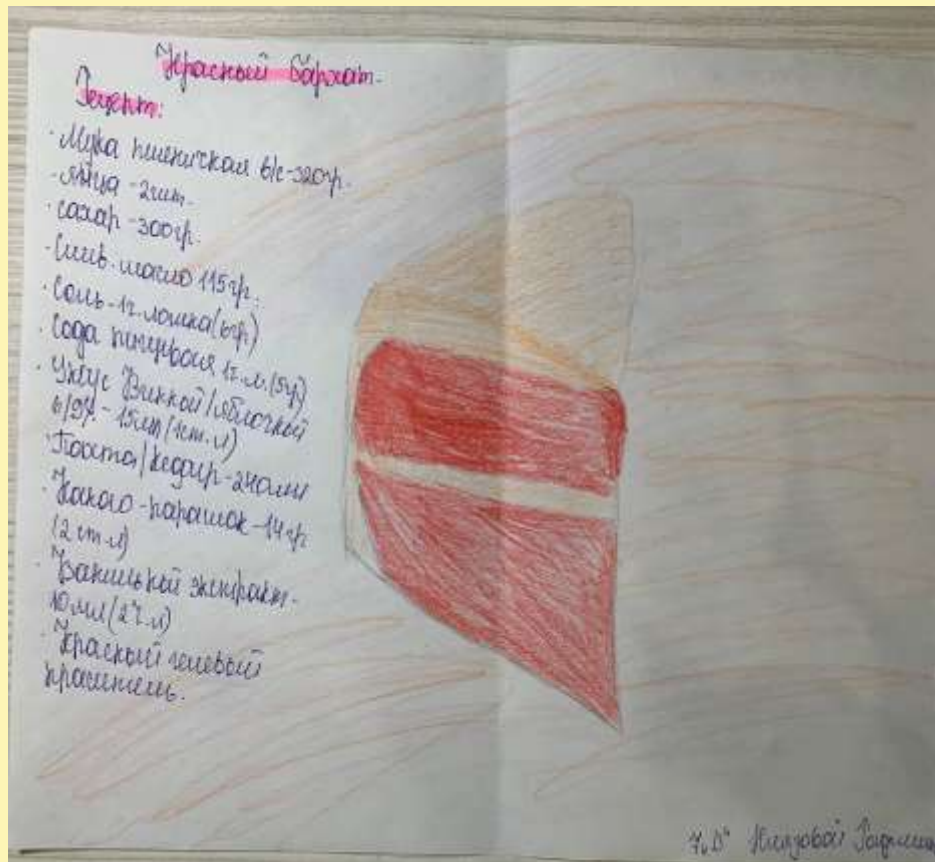 Красный бархат.
Рецепт:
· Мука пшеничная в/с-320гр.
- яйца -2шт.
· сахар -300гр.
· Слив. масло 115гр.
· Соль-1ч. ложка (6гр)
· Сода пищевая 1ч.л. (5гр)
· Уксус Винный/яблочный
6/9%. - 15мл (1ст. л)
· /кефир-240мл
· Какао-парашок-14гр
(2 ст л)
· Ванильный экстракт-
10мл (2ч л)
· Красный гелевый
краситель.